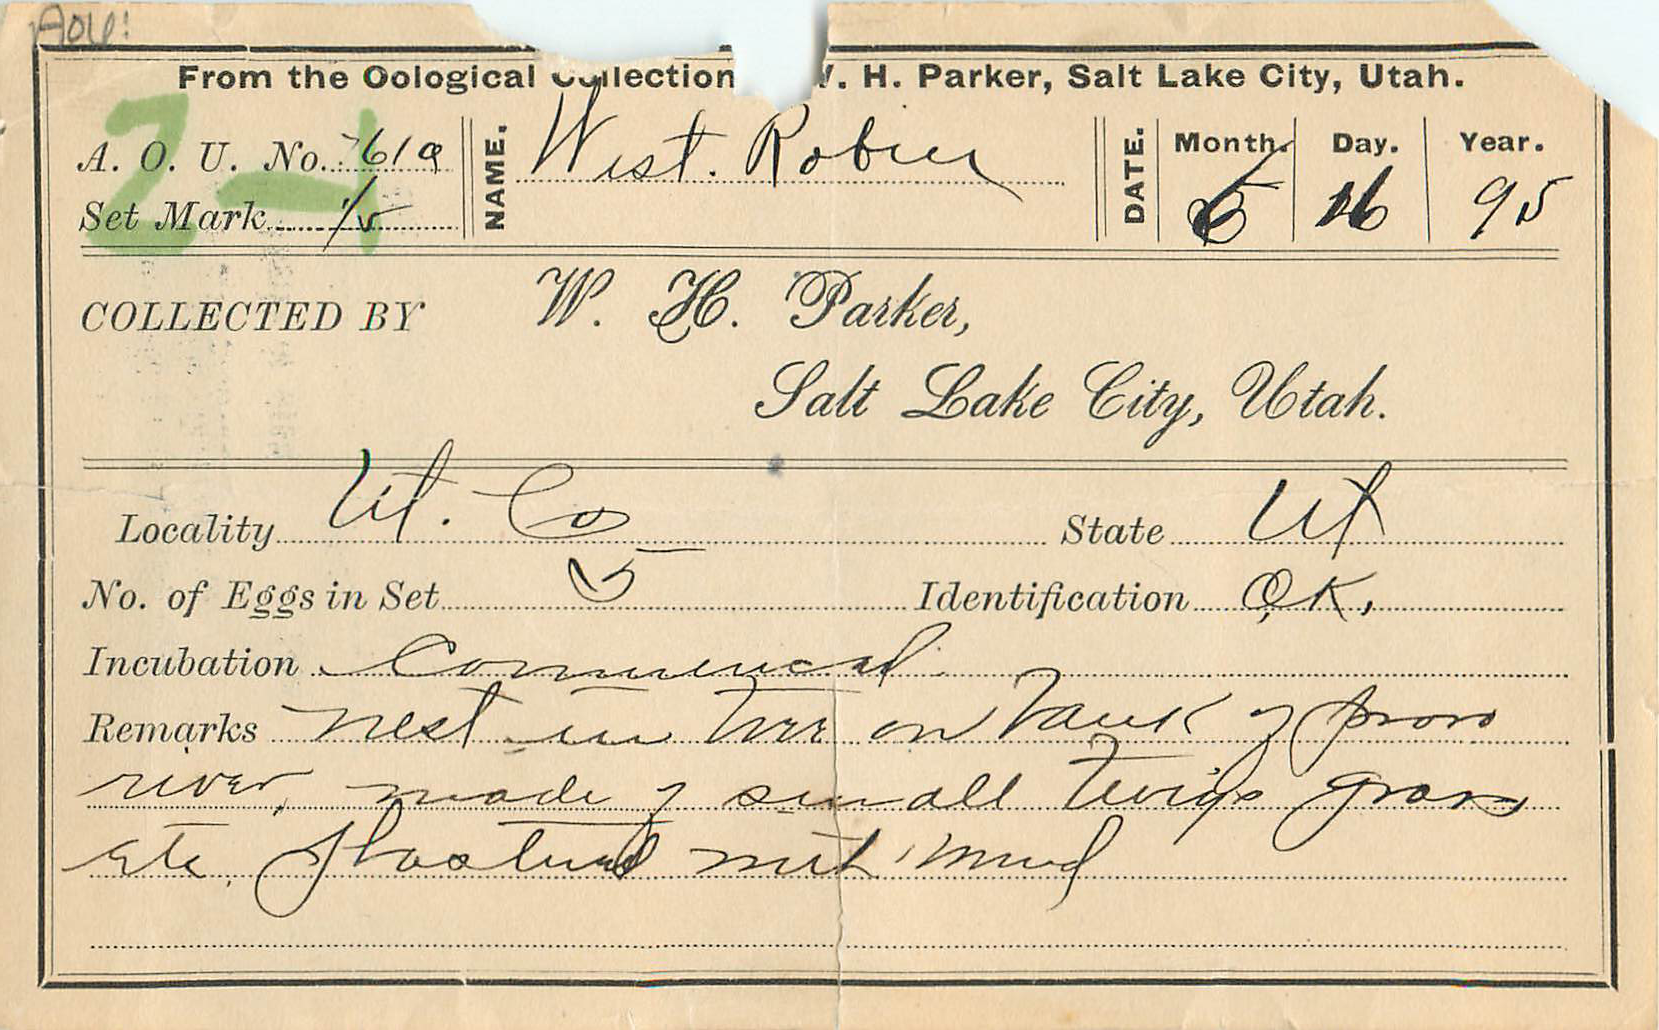 AOU:
From the Oological Collection W. H. Parker, Salt Lake City, Utah.
2-1
A. O. U. No. 761a NAME. West. Robin DATE. Month. Day. Year.
Set Mark 1/5 5 16 95
COLLECTED BY W. H. Parker,
Salt Lake City, Utah.
Locality Ut. Co State Ut
No. of Eggs in Set 5 Identification O.K.,
Incubation Commenced.
Remarks nest in tree on bank of provo
river, made of small twigs grass
etc. plastered with mud